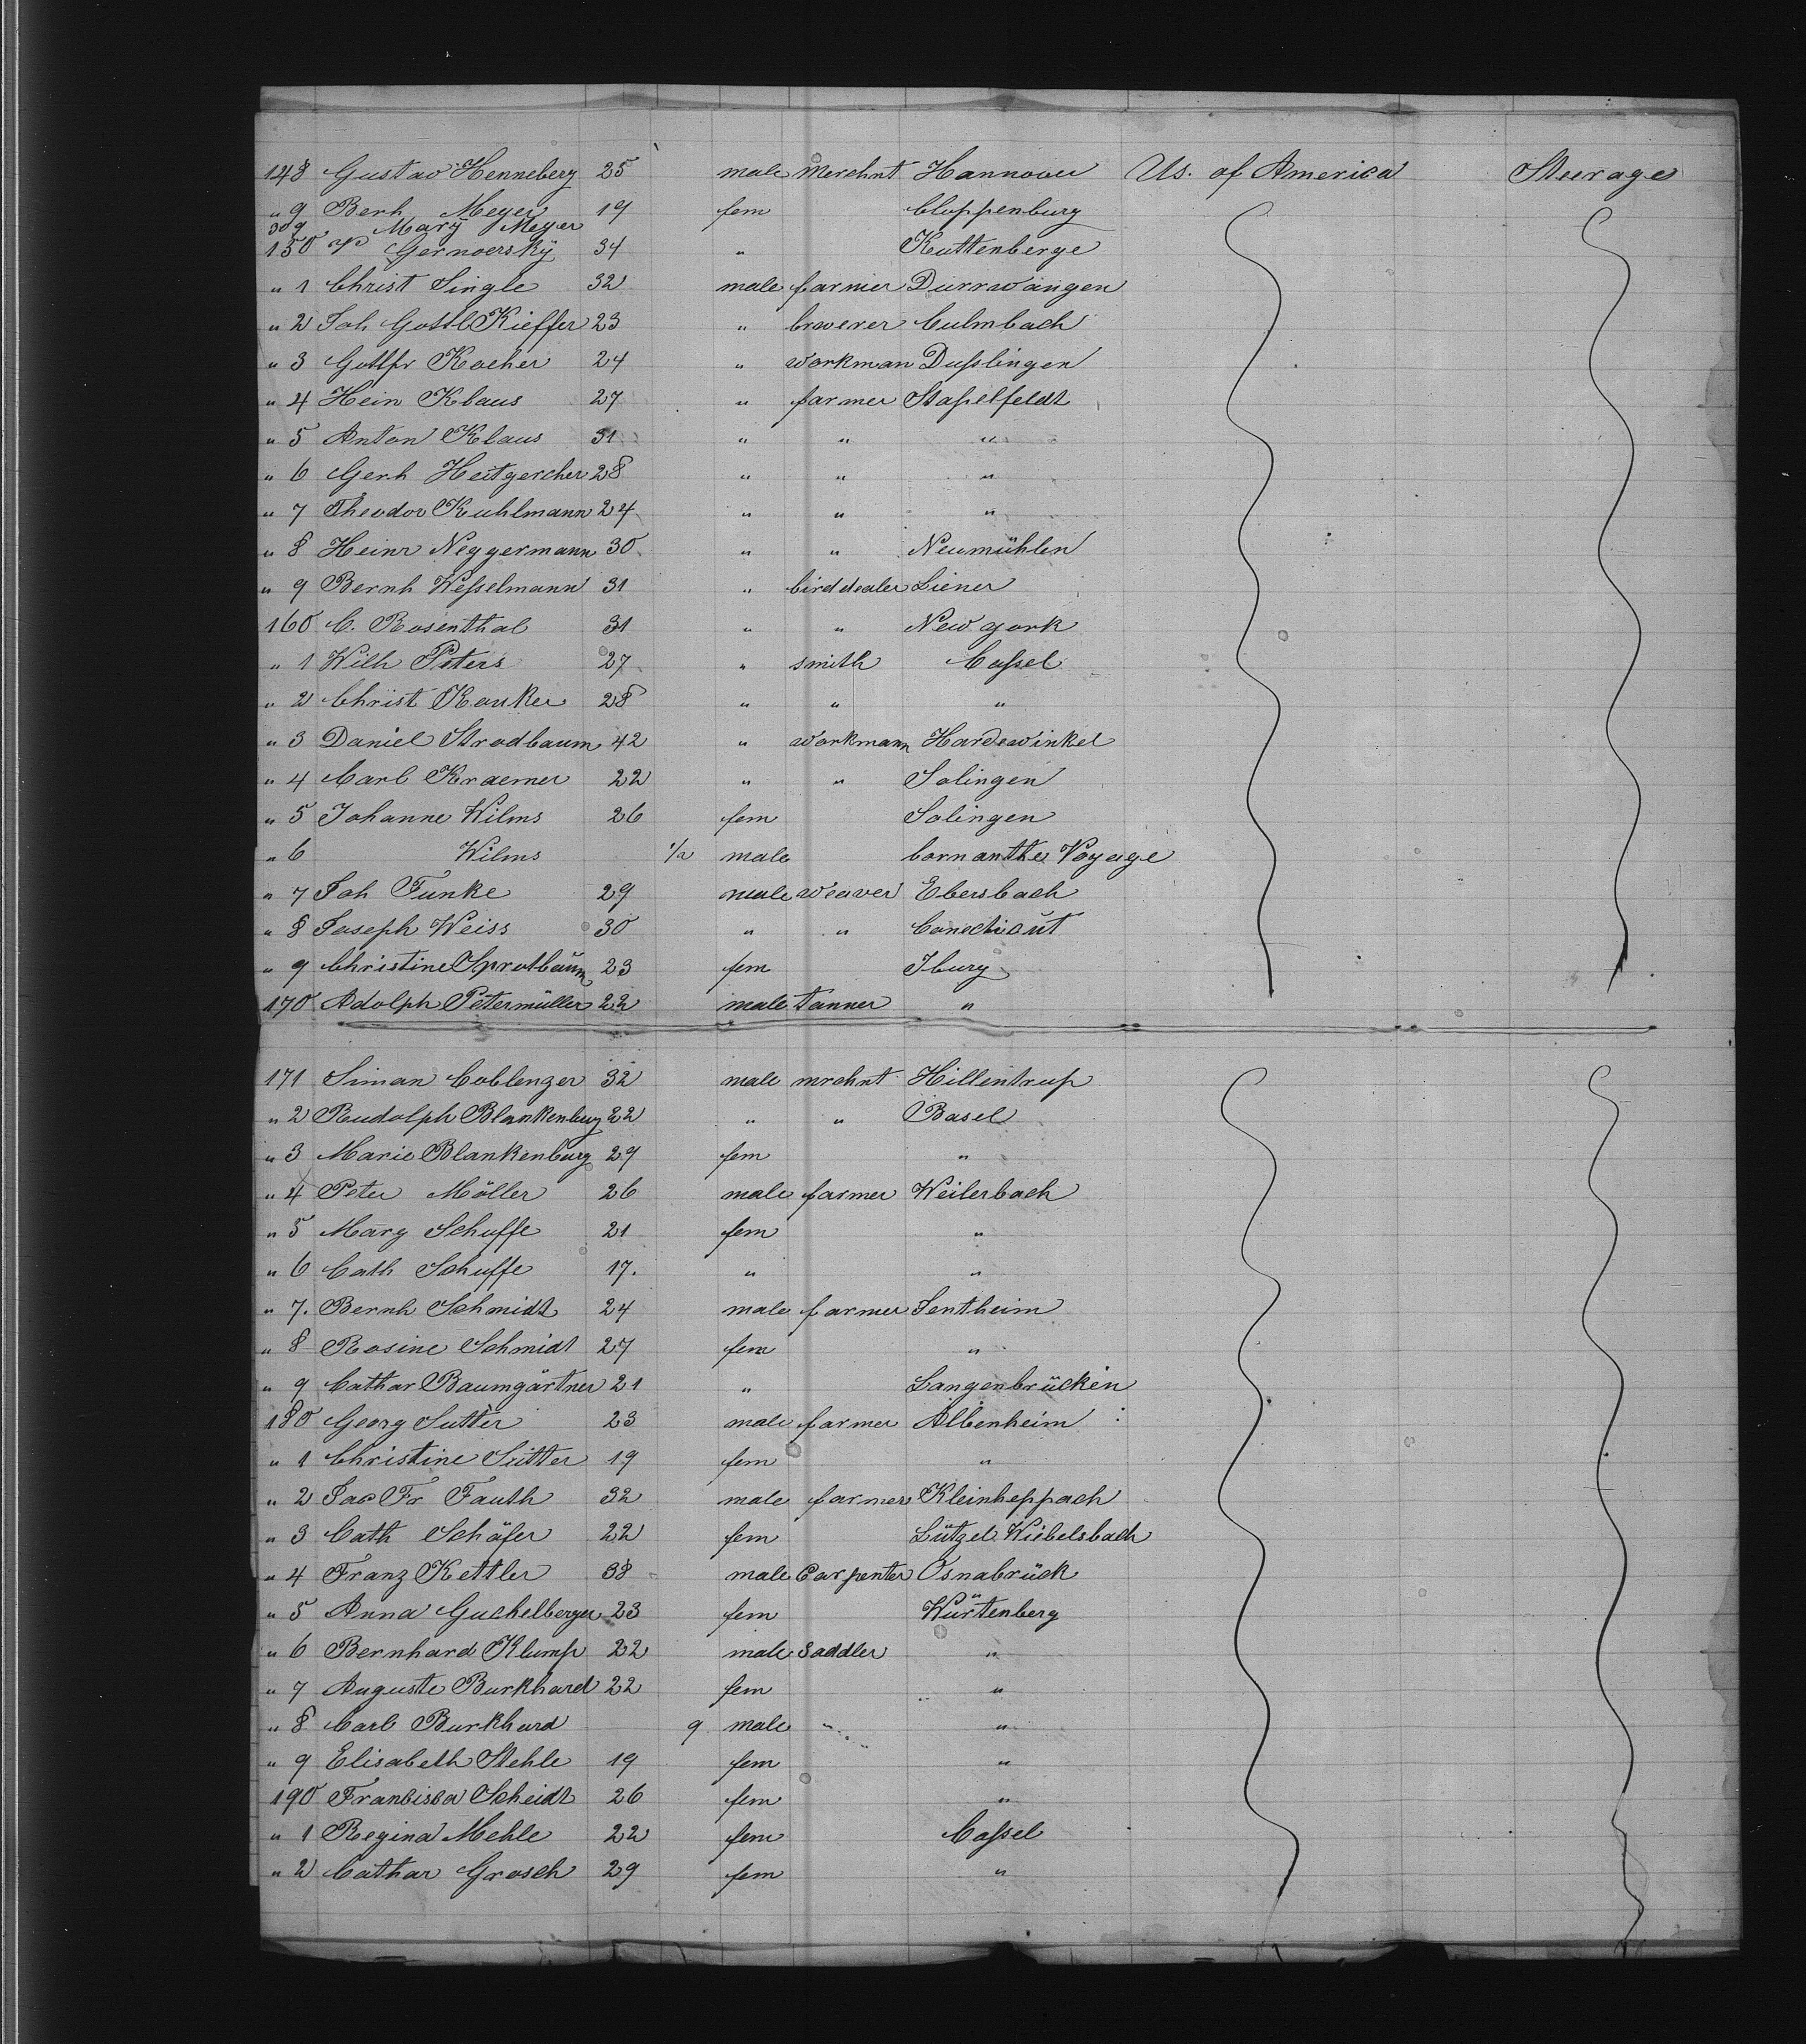 148 Gustav Henneberg 25 male Merchnt Hannover Us. of America Steerage
" 9 Berh Meyer 19 fem Cloppenburg
309 Mary Meyer
150 Gernversky 34 " Kuttenberge
" 1 Christ Single 32 male farmer Durrwangen
" 2 Joh Gottl Kieffer 23 " brwerer Culmbach
" 3 Gottfr Kocher 24 " workman Dusslingen
" 4 Hein Klaus 27 " farmer Stapelfeldt
" 5 Anton Klaus 31 " " "
" 6 Gerh Heitgercher 28 " " "
" 7 Theodor Kuhlmann 24 " " "
" 8 Heinr Neggermann 30 " " Neumühlen
" 9 Bernh Wesselmann 31 " birddealer Liener
160 C. Rosenthal 31 " " New york
" 1 Wilh Peters 27 " smith Cassel
" 2 Christ Kauker 28 " " "
" 3 Daniel Strodbaum 42 " workmann Hardewinkel
" 4 Carl Kraemer 22 " " Solingen
" 5 Johanne Wilms 26 fem Solingen
" 6 Wilms 1/2 male born on the Voyage
" 7 Joh Funke 29 male weaver Ebersbach
" 8 Joseph Weiss 30 " " Conecticut
" 9 Christine Sprotbaum 23 fem Iburg
170 Adolph Petermüller 22 male tanner "
171 Siman Coblenzer 32 male mrchnt Hillentrup
" 2 Rudolph Blankenburg 22 " " Basel
" 3 Marie Blankenburg 29 fem "
" 4 Peter Möller 26 male farmer Weilerbach
" 5 Mary Schuffe 21 fem "
" 6 Cath Schuffe 17. " "
" 7. Bernh Schmidt 24 male farmer Sentheim
" 8 Rosine Schmidt 27 fem "
" 9 Cathar Baumgärtner 21 " Langenbrücken
180 Georg Sutter 23 male farmer Albenheim
" 1 Christine Sutter 19 fem "
" 2 Jac Fr Fauth 32 male farmer Kleinheppach
" 3 Cath Schäfer 22 fem Lützel Wiebelsbach
" 4 Franz Kettler 38 male Carpenter Osnabrück
" 5 Anna Guchelberger 23 fem Würtenberg
" 6 Bernhard Klump 22 male Saddler "
" 7 Auguste Burkhard 22 fem "
" 8 Carl Burkhard 9 male " "
" 9 Elisabeth Stehle 19 fem "
190 Franciska Scheidt 26 fem "
" 1 Regina Mehle 22 fem Cassel
" 2 Cathar Grosch 29 fem "